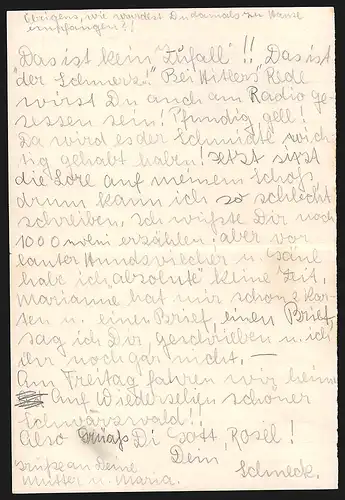 Übrigens, wie wurdest Du damals zu Hause
empfangen?!
Das ist kein "Zufall"!! Das ist
"der Schmerzen". Bei Hitlers Rede
wirst Du auch am Radio ge-
sessen sein! Pfundig gell!
Da wird es der Schmidte wich-
tig gehabt haben! Jetzt sitzt
die Lore auf meinem Schoß,
drum kann ich so schlecht
schreiben. Ich wüßte Dir noch
1000 erzählen, aber vor
lauter Hundsviecher u. Säue
habe ich "absolute" keine Zeit.
Marianne hat mir schon 2 Kar-
ten u. einen Brief, einen Brief,
sag ich Dir, geschrieben u. ich
ihr noch gar nicht. —
Am Freitag fahren wir heim.
Auf Wiedersehen schöner
Schwarzwald!!
Also Grüaß Di Gott, Rosel!
Dein
Schneck.
Grüße an Deine
Mutter u. Maria.